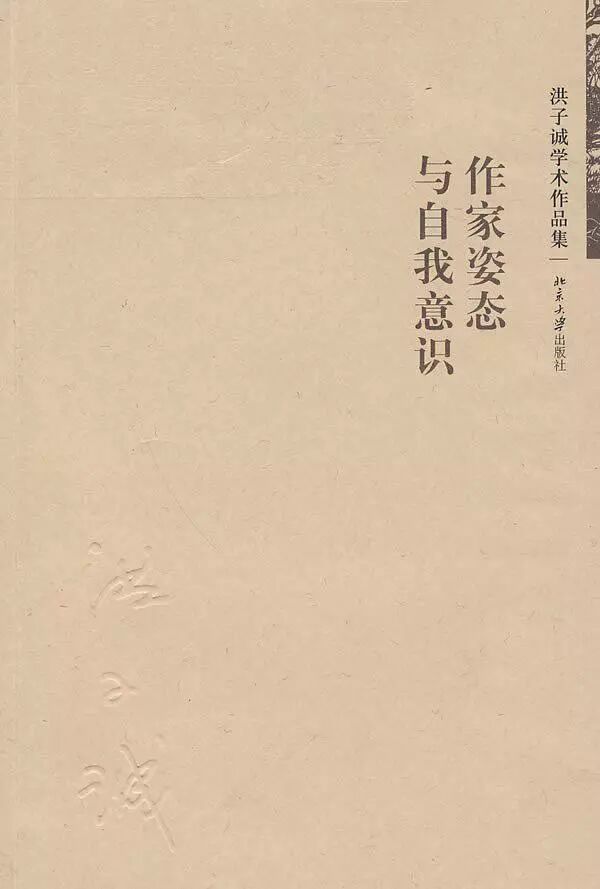 洪子诚学术作品集
北京大学出版社
作家姿态
与自我意识
洪子诚